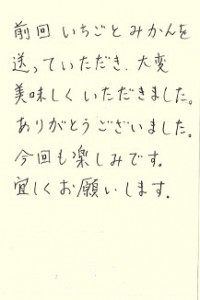 前回 いちごとみかんを
送っていただき、大変
美味しくいただきました。
ありがとうございました。
今回も楽しみです。
宜しくお願いします。